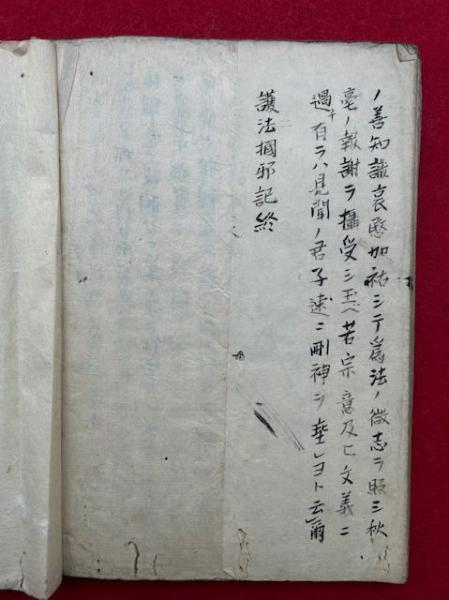 ノ善知識哀愍加祐シテ為法ノ微志ヲ照三秋
毫ノ報謝ヲ攝受シ玉ヘ若宗意及ヒ文義ニ
過チ有ラハ見聞ノ君子速ニ刪補ヲ垂レヨト云爾
護法摑邪記終